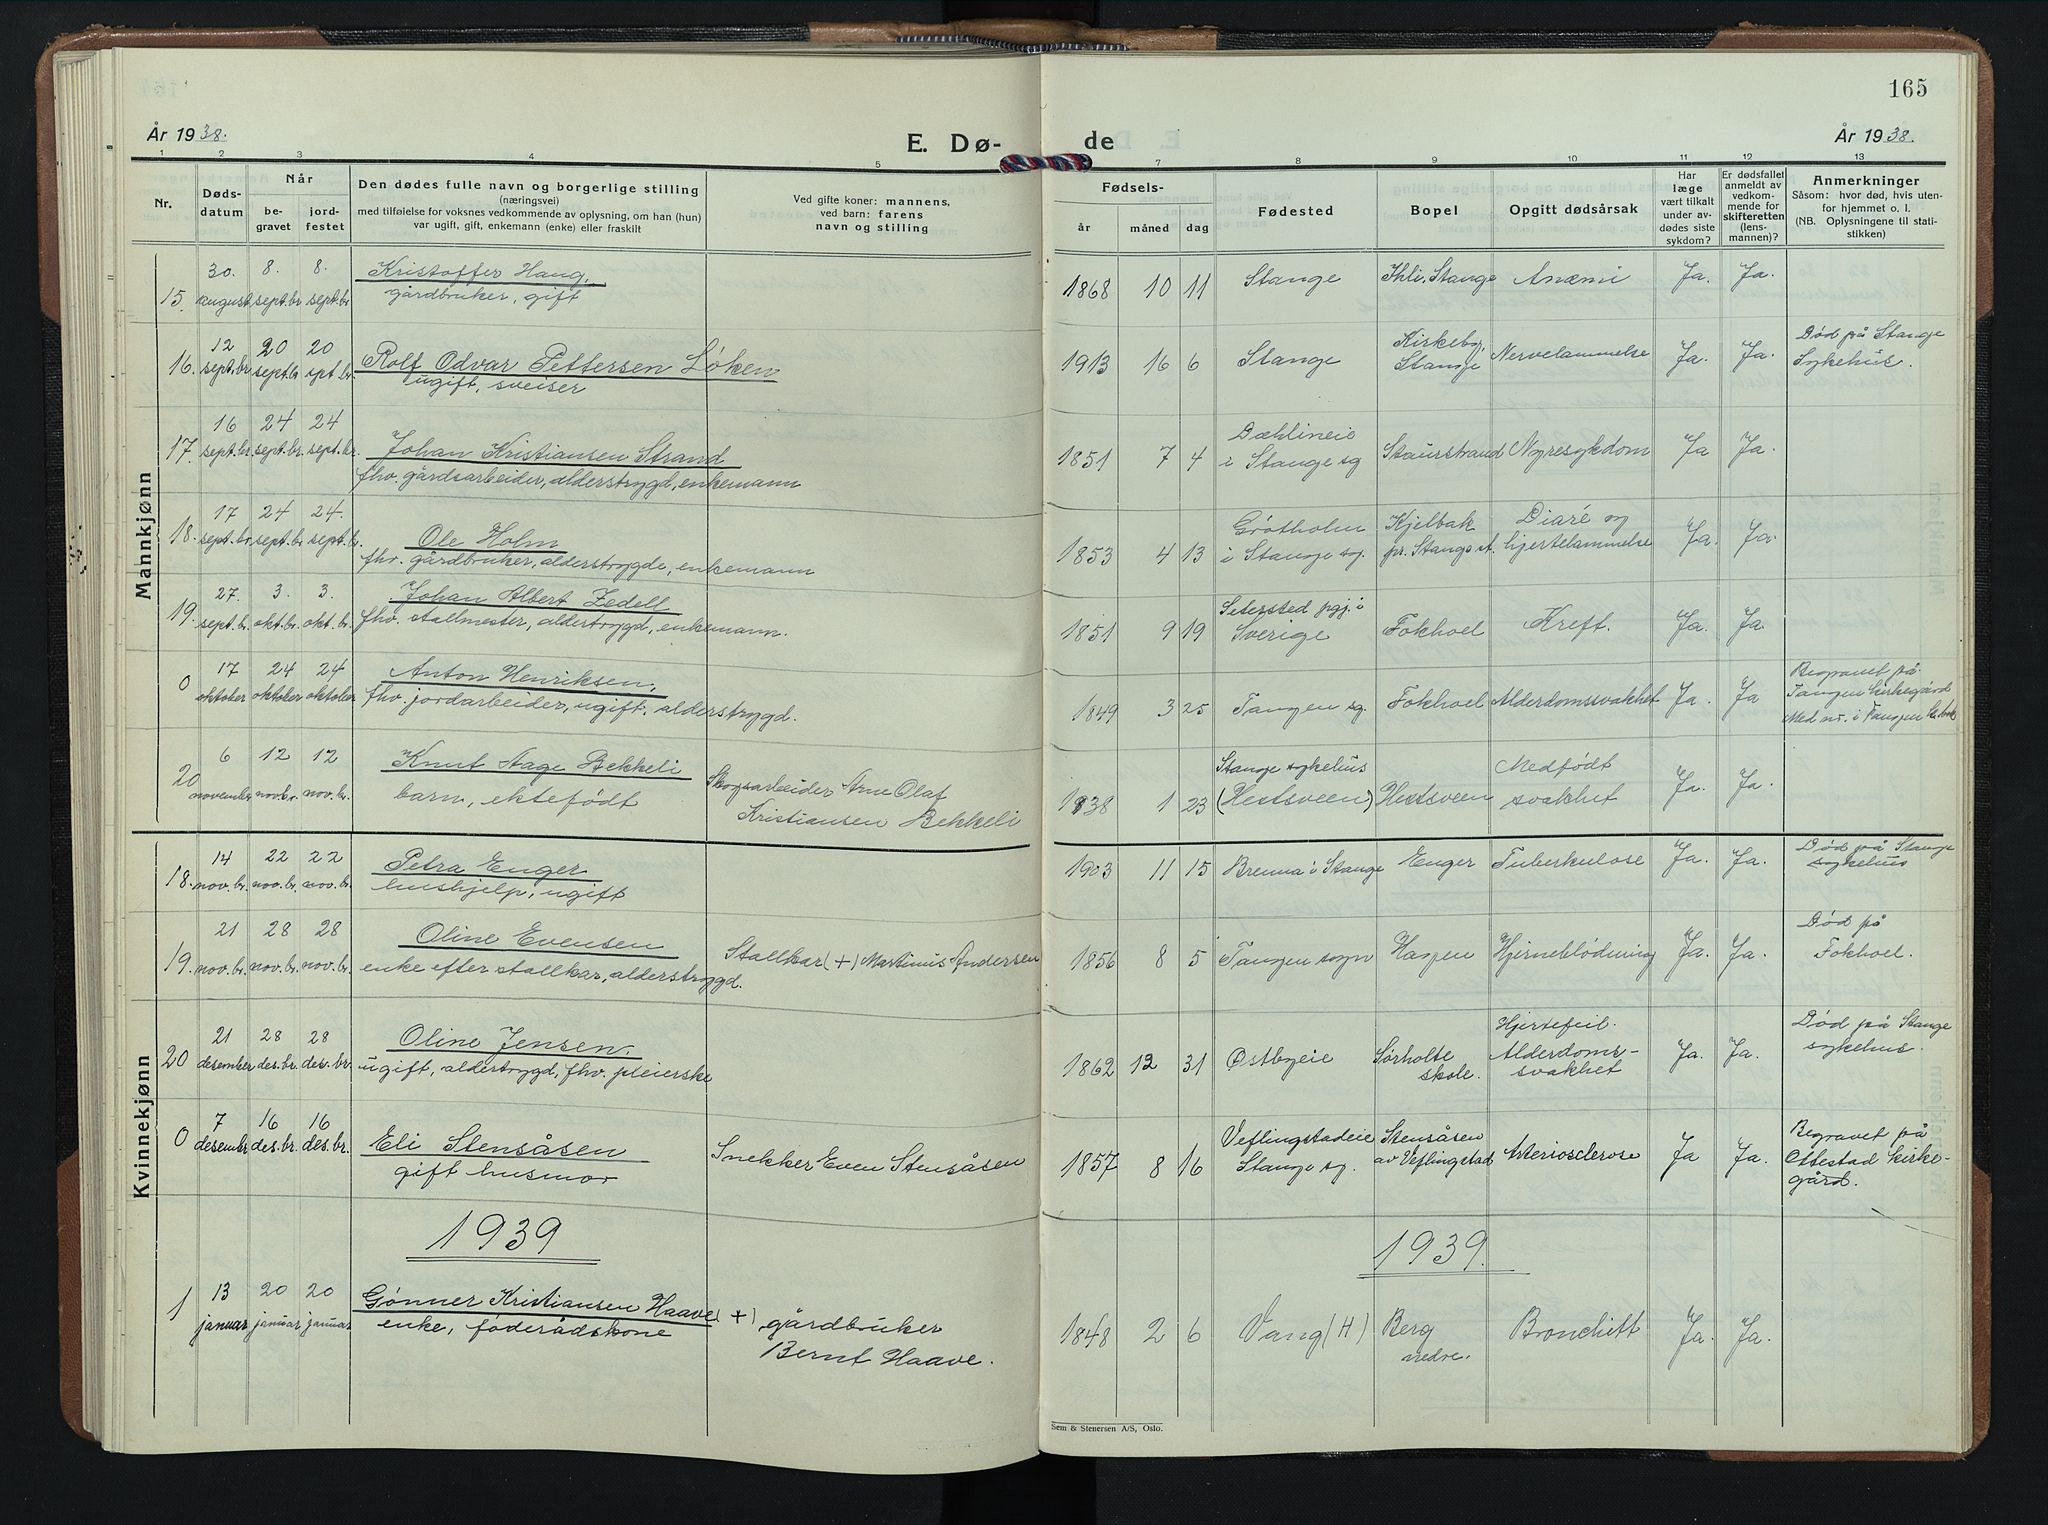 165
År 1938.
E. Dø-
de
År 1938.
1 2 3 4 5 7 8 9 10 11 12 13
Nr.
Døds-
datum
Når
be-
gravet
jord-
festet
Den dødes fulle navn og borgerlige stilling
(næringsvei)
med tilføielse for voksnes vedkommende av oplysning, om han (hun)
var ugift, gift, enkemann (enke) eller fraskilt
Ved gifte koner: mannens,
ved barn: farens
navn og stilling
Fødsels-
år måned dag
Fødested
Bopel
Opgitt dødsårsak
Har
læge
vært tilkalt
under av-
dødes siste
sykdom?
Er dødsfallet
anmeldt av
vedkom-
mende for
skifteretten
(lens-
mannen)?
Anmerkninger
Såsom: hvor død, hvis uten-
for hjemmet o. l.
(NB. Oplysningene til stati-
stikken)
Mannkjønn
30. 8. 8. Kristoffer Haug,
15 august sept.br sept.br gårdbruker, gift
1868 10 11 Stange Ihli, Stange Anæmi Ja. Ja.
12 20 20
16. sept.br sept.br spt.br Rolf Odvar Pettersen Løken
ugift, sveiser
Kirkeby, Død på Stange
1913 16 6 Stange Stange Nervelammelse Ja. Ja. Sykehus.
16 24 24
17. sept.br sept.br. sept.br. Johan Kristiansen Strand
fhv. gårdsarbeider, alderstrygd, enkemann
Dæhlineie
1851 7 4 i Stange sg Staurstrand Nyresykdom Ja Ja.
17 24 24. Ole Holm
18. sept.br sept.br sept.br. fhv. gårdbruker, alderstrygde, enkemann
Grøtholm Kjelbak Diaré og
1853 4 13 i Stange sg. pr. Stange st. hjertelammelse Ja. Ja.
27. 3. 3. Johan Albert Zedell
19. sept.br. okt.br. okt.br. fhv. stallmester, alderstrygd, enkemann.
Setersted pgj. i
1851 9 19 Sverige Fokhoel Kreft. Ja. Ja.
17 24 24 Anton Henriksen,
0 oktober oktober oktober fhv. jordarbeider, ugift, alderstrygd.
Begravet på
1849 3 25 Tangen sg. Fokhoel Alderdomssvakhet Ja. Ja Tangen kirkegård
Med nr. i Tangen
6 12 12 Knut Aage Bekkeli
20 november nov.br. nov.br. barn, ektefødt
Skogsarbeider Arne Olaf
Kristiansen Bekkeli
Stange sykehus Medfødt
1938 1 23 (Hestsveen) Hestsveen svakhet Ja. Ja.
Kvinnekjønn
14 22 22 Petra Enger
18. nov.br. nov.br. nov.br. hushjelp, ugift
1903 11 15 Brenna i Stange Enger Tuberkulose Ja. Ja. Død på Stange
sykehus
21 28 28 Oline Evensen
19. nov.br. nov.br. nov.br. enke efter stallkar, alderstrygd.
Stallkar (+) Martinus Andersen
Død på
1856 8 5 Tangen sogn Haspen Hjerneblødning Ja. Ja. Fokhoel.
21 28 28 Oline Jensen.
20 desember des.br. des.br. ugift, alderstrygd, fhv. pleierske
Hjertefeil. Død på Stange
1862 12 31 Østbyeie Sørholte Alderdoms- Ja. Ja. sykehus.
skole. svakhet
7 16 16
0 desember des.br. des.br. Eli Stensåsen
gift husmor
Snekker Even Stensåsen
Veflingstadeie Stensåsen Begravet på
1857 8 16 Stange sg. av Veflingstad Arteriosclerose Ja Ja. Ottestad kirke-
gård.
1939
1939.
13 20 20 Gønner Kristiansen Haave (+)
1 januar januar januar enke, føderådskone
gårdbruker
Bernt Haave.
1848 2 6 Vang (H) Berg Bronchitt Ja. Ja.
nedre.
Sem & Stenersen A/S, Oslo.